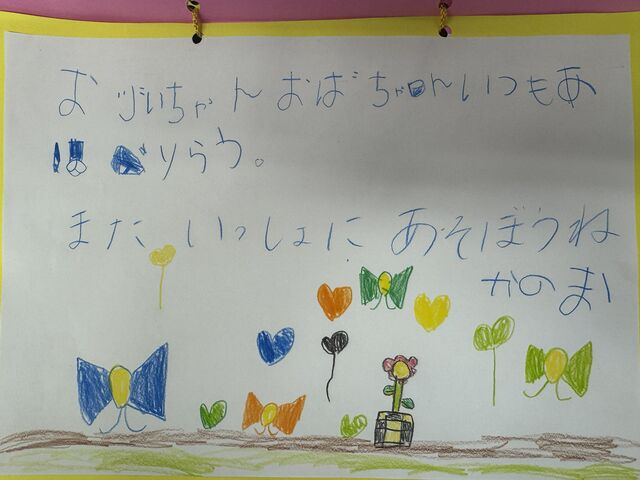 おじいちゃん おばちゃんいつもあ
りらう。
また いっしょに あそぼうね
かのま